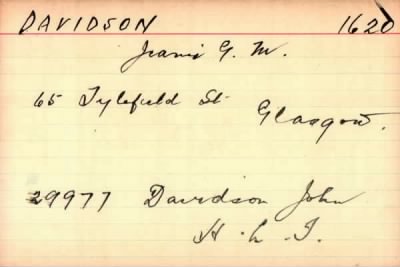 DAVIDSON 1620
Jeanie G. M.
65 Tylefield St Glasgow.
29977 Davidson John
H. L. I.